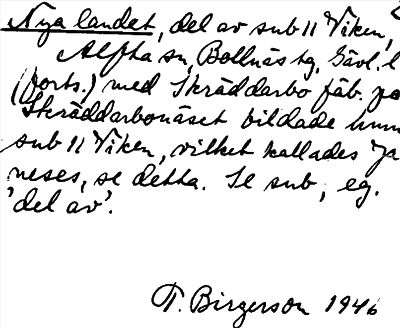 Nya landet, del av sub 11 Viken,
Alfta sn, Bollnäs tg, Gävl. l
(forts.) med Skräddarbo fäb. på
Skräddarbonäset bildade hum
sub 11 Viken, vilket kallades Ja
neses, se detta. Se sub, eg.
'del av'.
T. Birgerson 1946